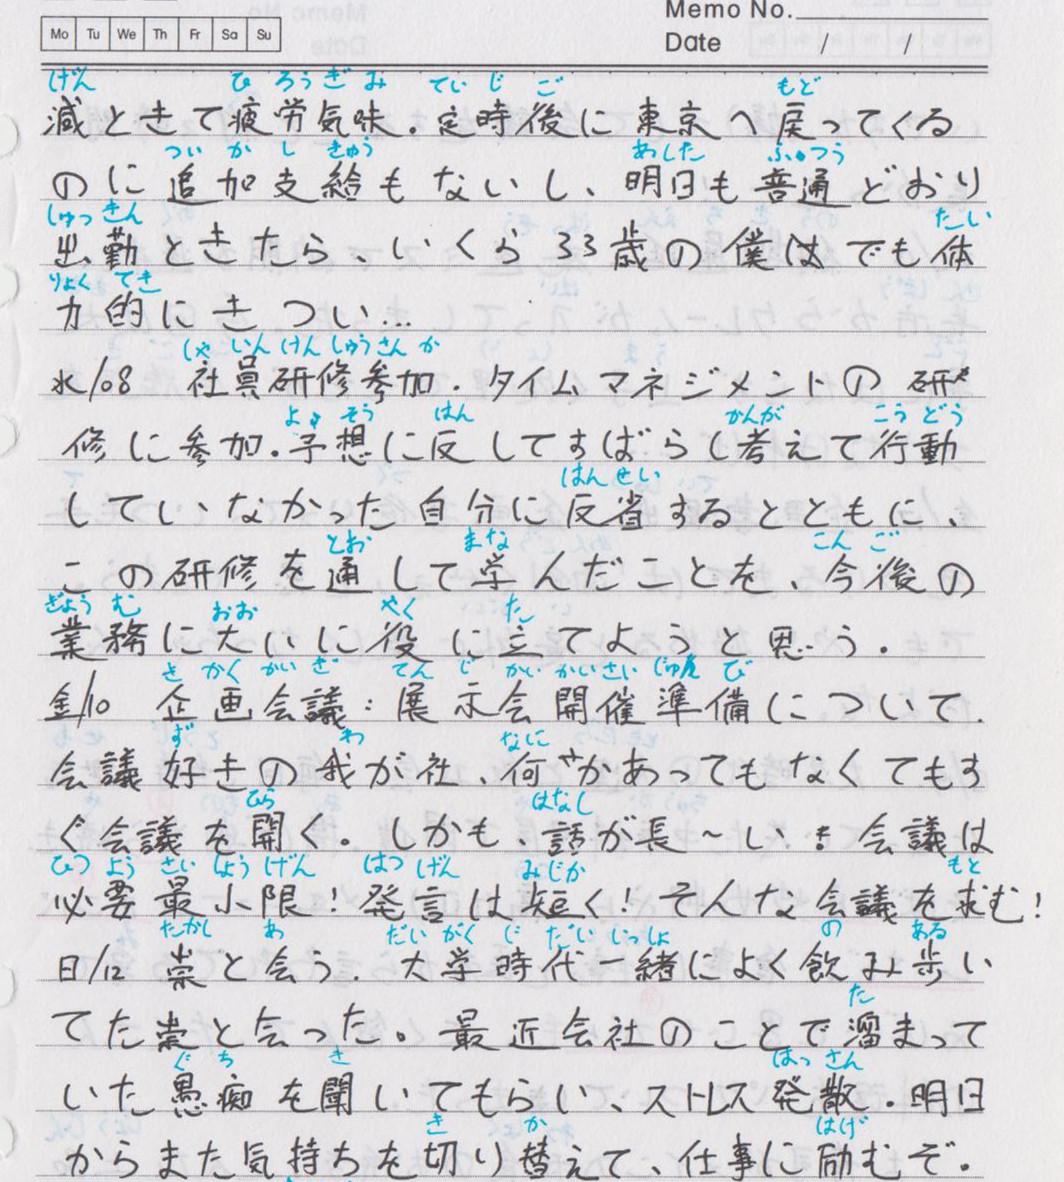 Memo No.
Mo Tu We Th Fr Sa Su
Date / /
げん ひ ろう ぎ み てい じ ご もど
減ときて疲労気味.定時後に東京へ戻ってくる
つい か し きゅう あした ふつう
のに追加支給もないし、明日も普通どおり
しゅっ きん たい
出勤ときたら、いくら33歳の僕はでも体
りょく てき
力的にきつい…
しゃ いん けん しゅう さん か
水/08 社員研修参加.タイムマネジメントの研
よ そう はん かんが こう どう
修に参加.予想に反してすばらく考えて行動
はん せい
していなかった自分に反省するとともに、
とお まな こん ご
この研修を通して学んだことを、今後の
ぎょう む おお やく た
業務に大いに役に立てようと思う.
き かく かい ぎ てん じ かい かい さい じゅん び
金/10 企画会議:展示会開催準備について.
ず わ なに
会議好きの我が社、何かあってもなくてもす
ひら はなし
ぐ会議を開く。しかも話が長〜い 会議は
ひつ よう さい しょう げん はつ げん みじか もと
必要最小限!発言は短く!そんな会議を求む!
たかし あ だい がく じ だい いっしょ の ある
日/12 崇と会う.大学時代一緒によく飲み歩い
た
てた崇と会った。最近会社のことで溜まって
ぐ ち き はっ さん
いた愚痴を聞いてもらい、ストレス発散.明日
き か はげ
からまた気持ちを切り替えて、仕事に励むぞ.